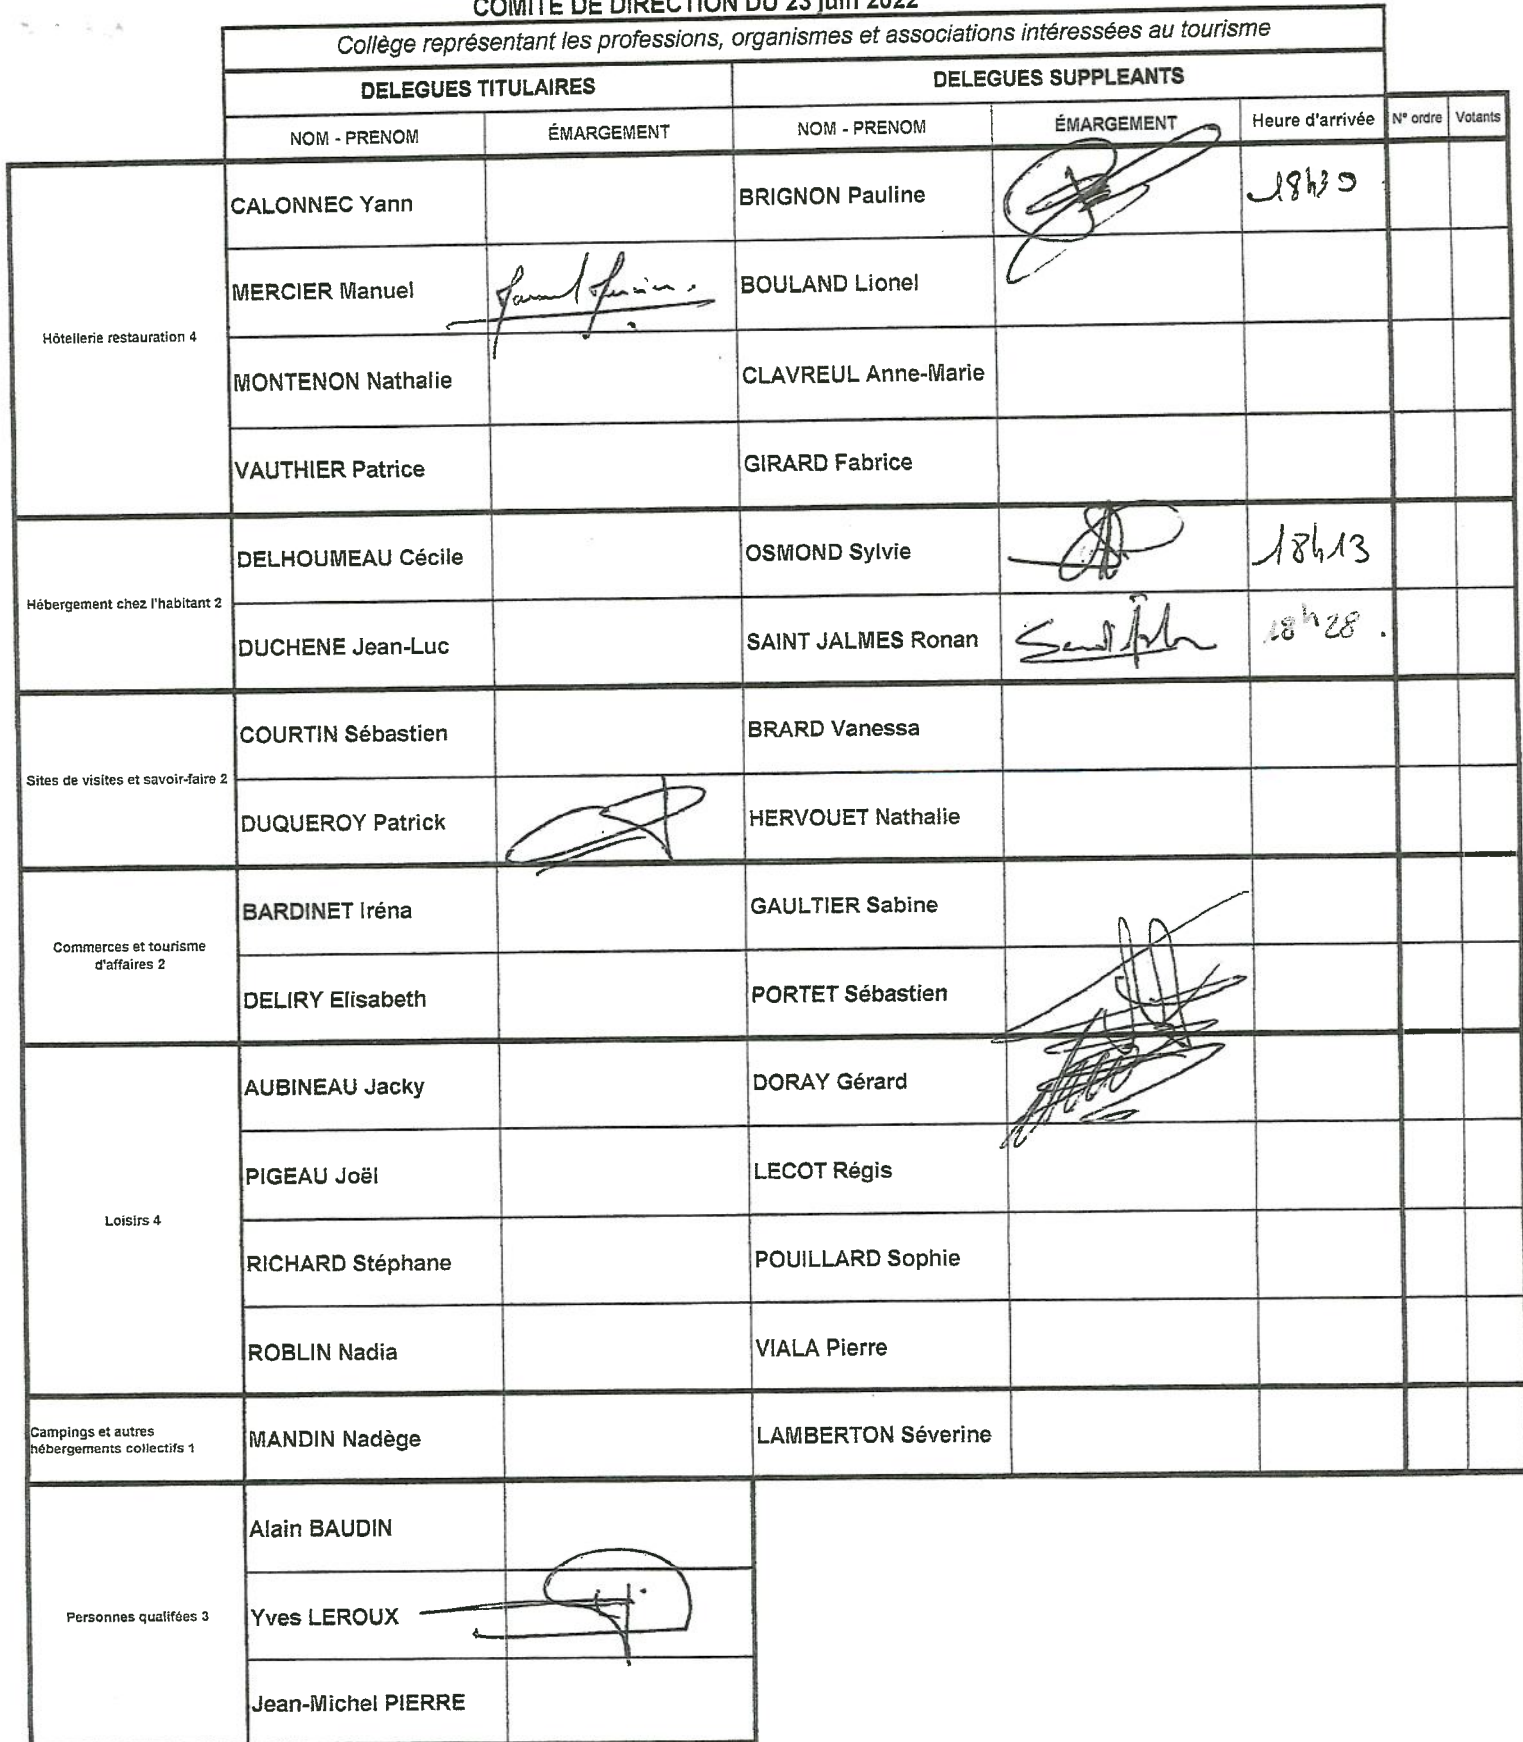 COMITE DE DIRECTION DU 23 juin 2022
Collège représentant les professions, organismes et associations intéressées au tourisme
DELEGUES TITULAIRES DELEGUES SUPPLEANTS
NOM - PRENOM ÉMARGEMENT NOM - PRENOM ÉMARGEMENT Heure d'arrivée N° ordre Votants
Hôtellerie restauration 4
CALONNEC Yann BRIGNON Pauline 18h30
MERCIER Manuel BOULAND Lionel
MONTENON Nathalie CLAVREUL Anne-Marie
VAUTHIER Patrice GIRARD Fabrice
Hébergement chez l'habitant 2
DELHOUMEAU Cécile OSMOND Sylvie 18h13
DUCHENE Jean-Luc SAINT JALMES Ronan 18h28.
Sites de visites et savoir-faire 2
COURTIN Sébastien BRARD Vanessa
DUQUEROY Patrick HERVOUET Nathalie
Commerces et tourisme
d'affaires 2
BARDINET Iréna GAULTIER Sabine
DELIRY Elisabeth PORTET Sébastien
Loisirs 4
AUBINEAU Jacky DORAY Gérard
PIGEAU Joël LECOT Régis
RICHARD Stéphane POUILLARD Sophie
ROBLIN Nadia VIALA Pierre
Campings et autres
hébergements collectifs 1
MANDIN Nadège LAMBERTON Séverine
Personnes qualifées 3
Alain BAUDIN
Yves LEROUX
Jean-Michel PIERRE